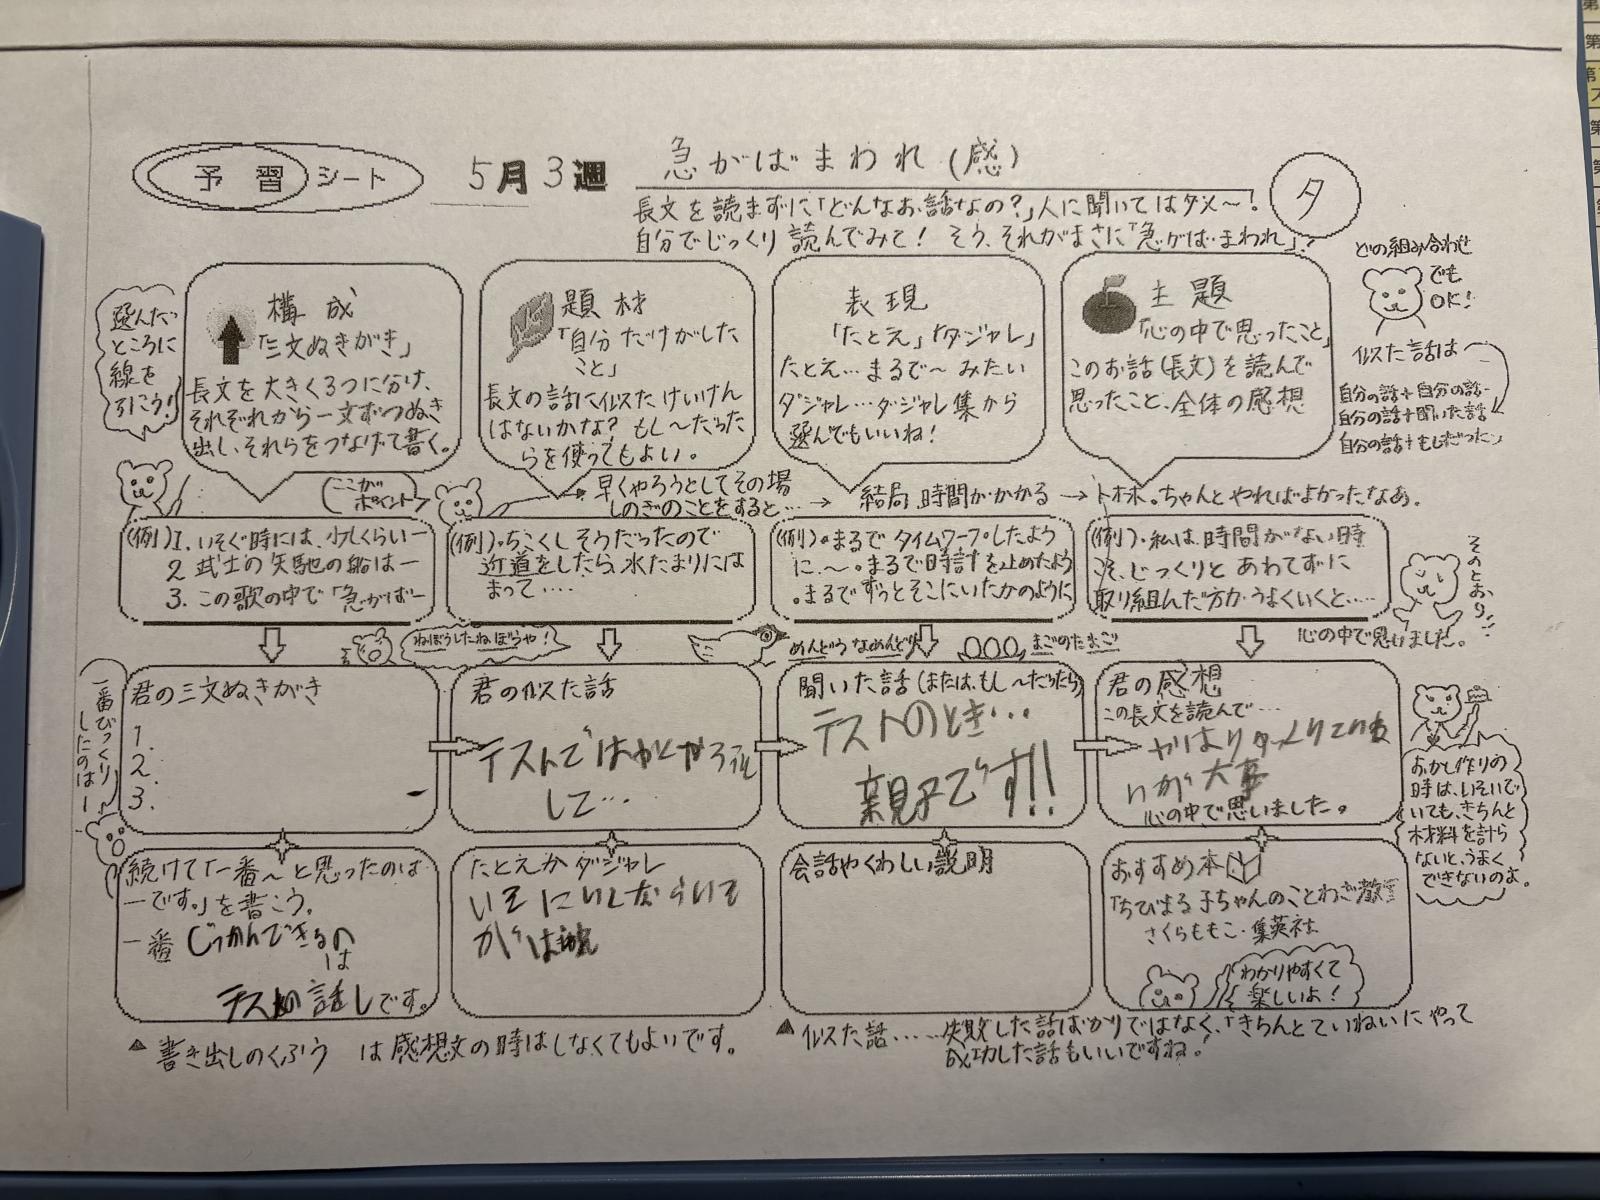 予習シート
5月3週
急がばまわれ(感)
夕
長文を読まずに「どんなお話なの?」人に聞いてはダメ〜!
自分でじっくり読んでみて! そう、それがまさに「急がば・まわれ」!
どの組み合わせ
でも
OK!
似た話は
自分の話+自分の話
自分の話+聞いた話
自分の話+もしだったら
選んだ
ところに
線を
引こう!
構成
「三文ぬきがき」
長文を大きく3つに分け、
それぞれから一文ずつぬき
出し、それらをつなげて書く。
題材
「自分だけがした
こと」
長文の話に似たけいけん
はないかな? もし〜だった
らを使ってもよい。
表現
「たとえ」「ダジャレ」
たとえ…まるで〜みたい
ダジャレ…ダジャレ集から
選んでもいいね!
主題
「心の中で思ったこと」
このお話(長文)を読んで
思ったこと、全体の感想
ここが
ポイント
早くやろうとしてその場
しのぎのことをすると…
→ 結局、時間がかかる
→トホホ。ちゃんとやればよかったなあ。
(例)1. いそぐ時には、少しくらいー
2. 武士の矢馳の船はー
3. この歌の中で「急がばー
(例)・ちこくしそうだったので
近道をしたら、水たまりには
まって‥‥
(例)。まるでタイムワープしたよう
に、〜。まるで時計を止めたよう
。まるでずっとそこにいたかのように
(例)・私は、時間がない時
こそ、じっくりとあわてずに
取り組んだ方がうまくいくと……
心の中で思いました。
そのとおり
ねぼうしたねぼうや!
めんどうなめんどり
まごのたまご
一番びっくり
したのはー
君の三文ぬきがき
1.
2.
3.
君の似た話
テストではやくやろうと
して…
聞いた話(または、もし〜だったら)
テストのとき…
親子です!!
君の感想
この長文を読んで…
やはりゆっくりていね
いが大事
心の中で思いました。
おかし作りの
時は、いそいで
いても、きちんと
材料を計ら
ないと、うまく
できないのよ。
続けて「一番〜と思ったのは
ーです。」を書こう。
一番じっかんできるの
は
テストの話しです。
たとえかダジャレ
会話やくわしい説明
おすすめ本
「ちびまる子ちゃんのことわざ教室」
さくらももこ・集英社
わかりやすくて
楽しいよ!
▲書き出しのくふう は感想文の時はしなくてもよいです。
▲似た話……失敗した話ばかりではなく、「きちんとていねいにやって
成功した話もいいですね!